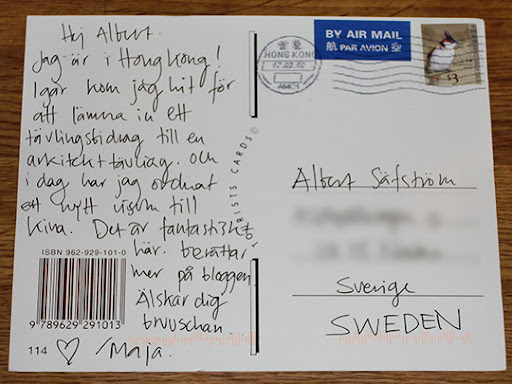 Hej Albert.
Jag är i Hong Kong!
Igår kom jag hit för
att lämna in ett
tävlingsbidrag till en
arkitekttävling. Och
i dag har jag ordnat
ett nytt visum till
Kina. Det är fantastiskt
här. berättar
mer på bloggen
Älskar dig
bruuschan.
♡ /Maja.
ISBN 962-929-101-0
9 789629 291013
114
TOURISTS CARDS ©
HONG KONG
BY AIR MAIL
航 PAR AVION 空
$3
Albert Säfström
Sverige
SWEDEN